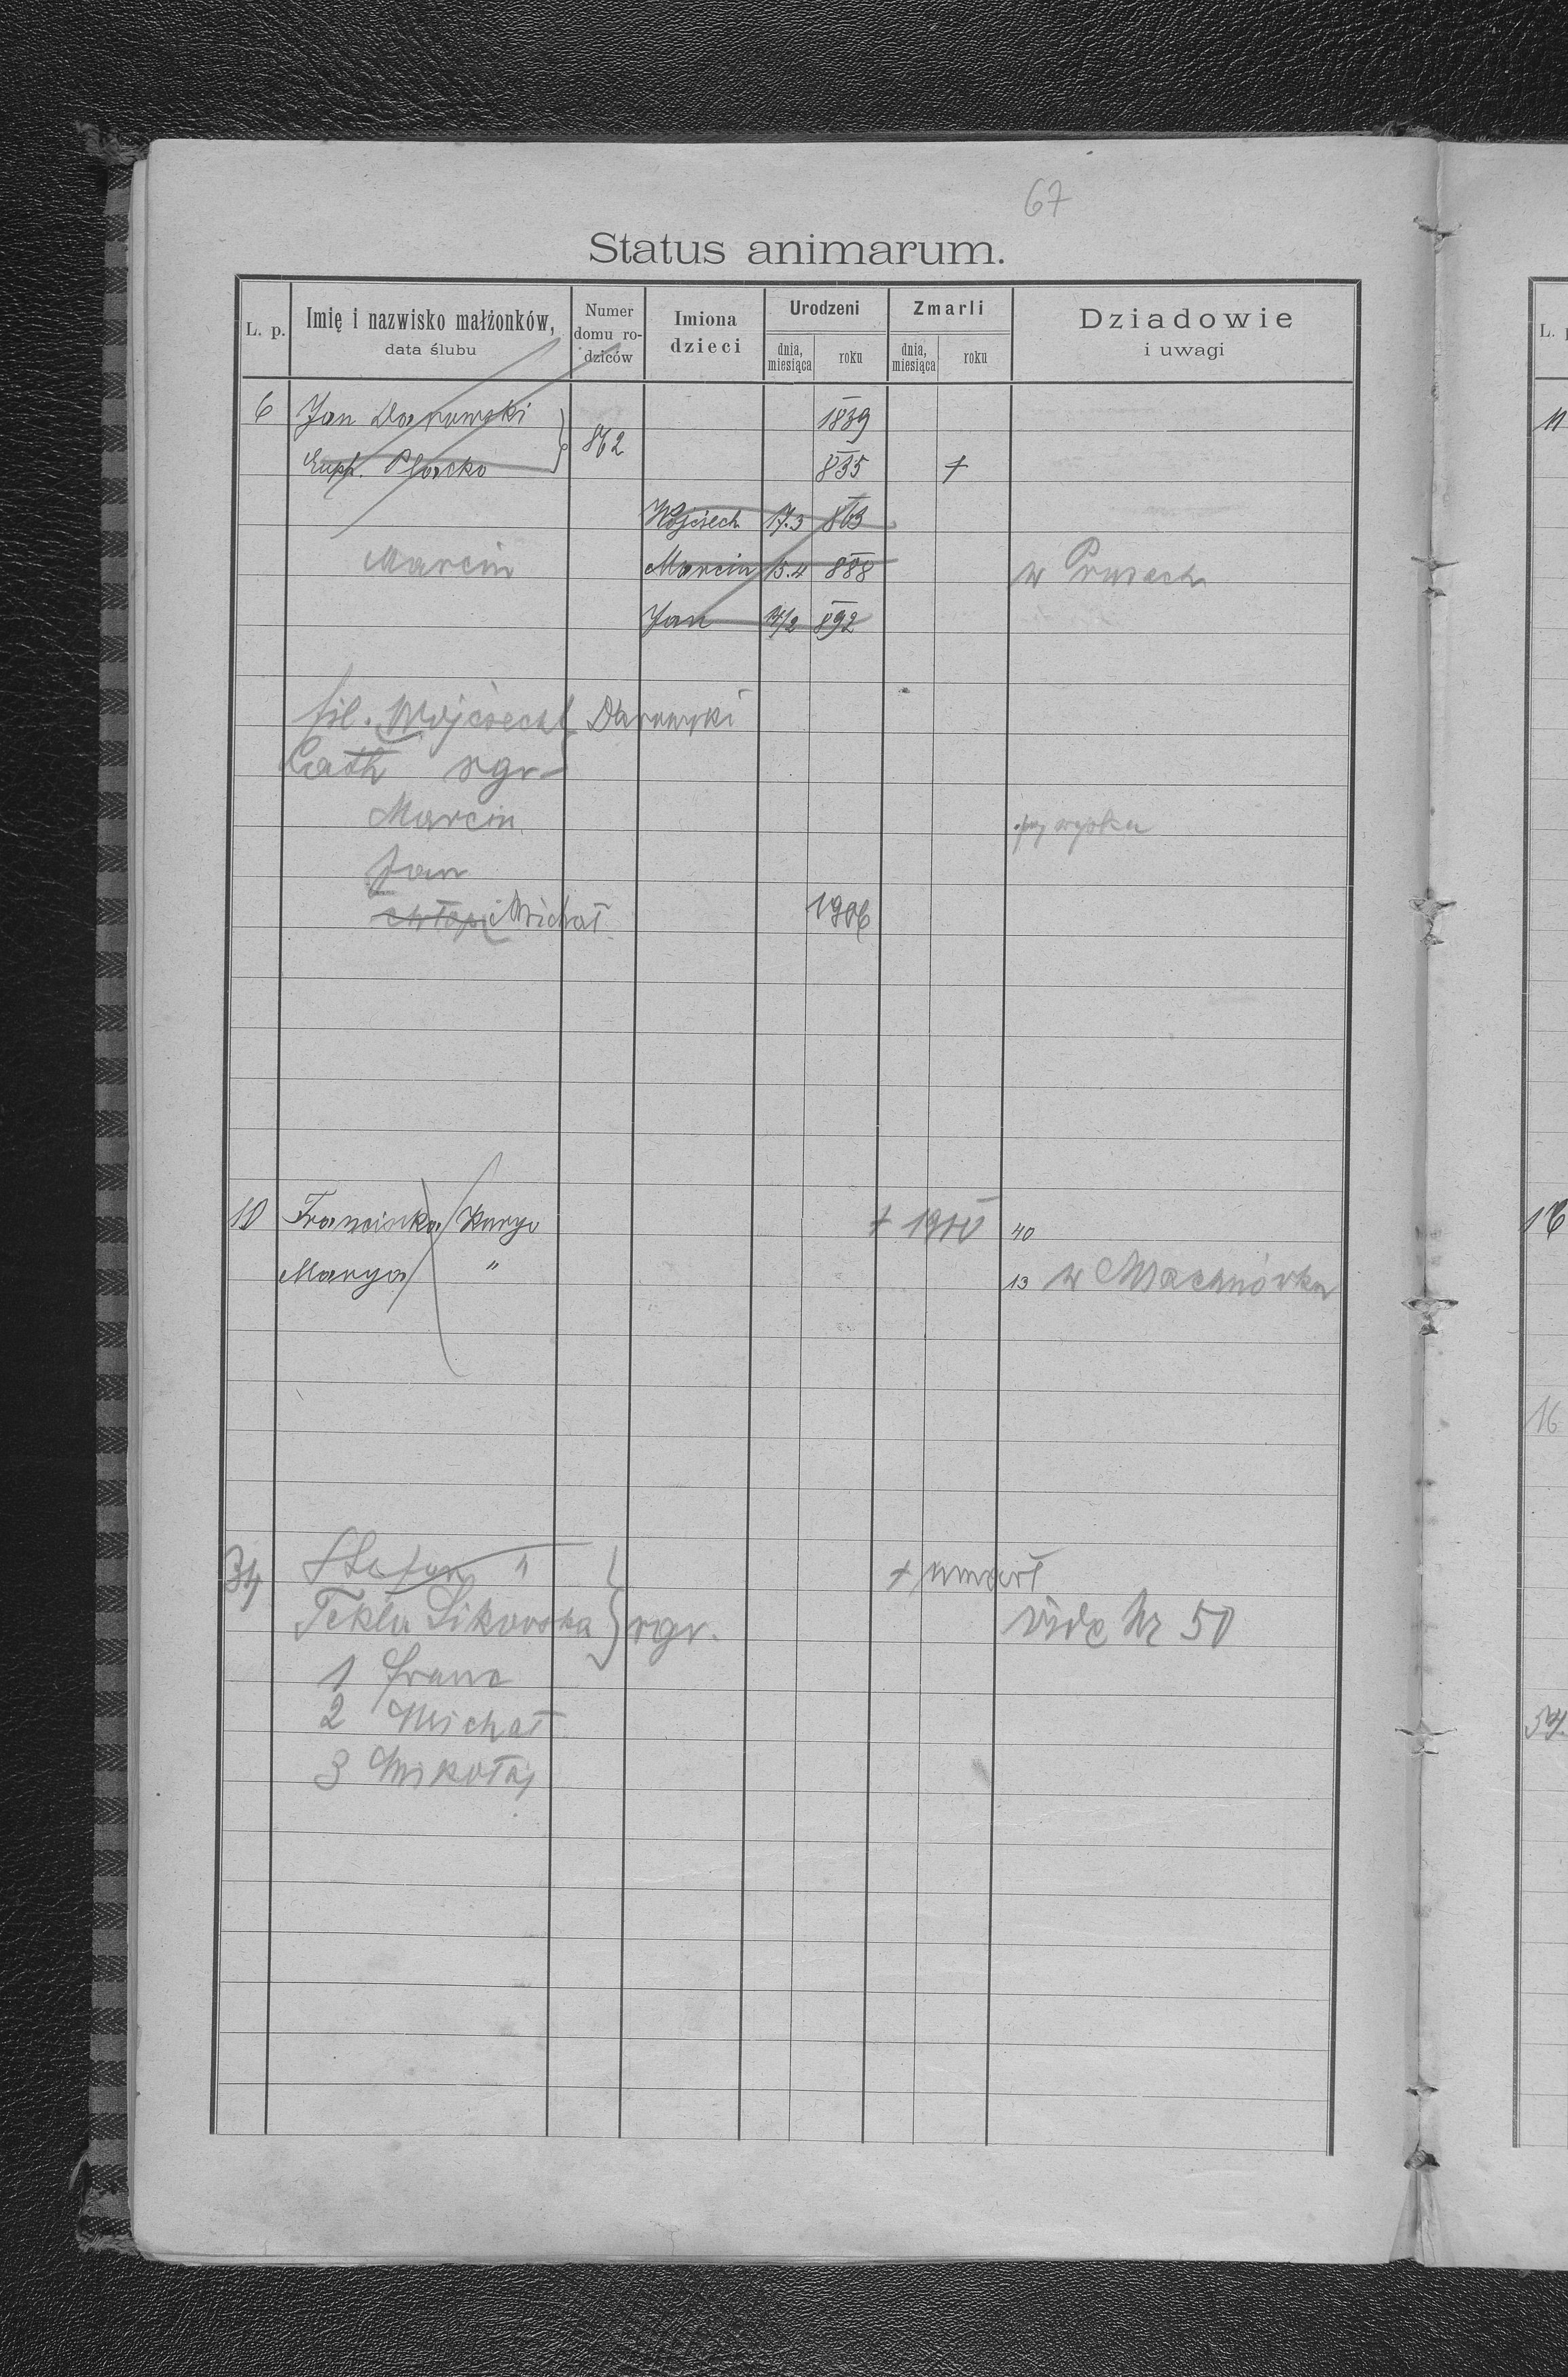 67
Status animarum.
L. p. Imię i nazwisko małżonków, data ślubu Numer domu rodziców Imiona dzieci Urodzeni dnia, miesiąca roku Zmarli dnia, miesiąca roku Dziadowie i uwagi
6 Jan Darowski 862 1839
Euph. Placko 835 +
Wojciech 17.3 863
Marcin Marcin 15.4 888 w Prusach
Jan 17/2 892
fil. Wojciech Darowski
Cath rgr
Marcin przy wojsku
Jan
Michał 1906
10 Franciszka Kuryj + 1910 40
Marya " 13 w Machnówku
34 Stefan " + umarł
Tekla Sikorska rgr. vide Nr 50
1 Franc
2 Michał
3 Mikołaj
L. p
11
16
16
54.